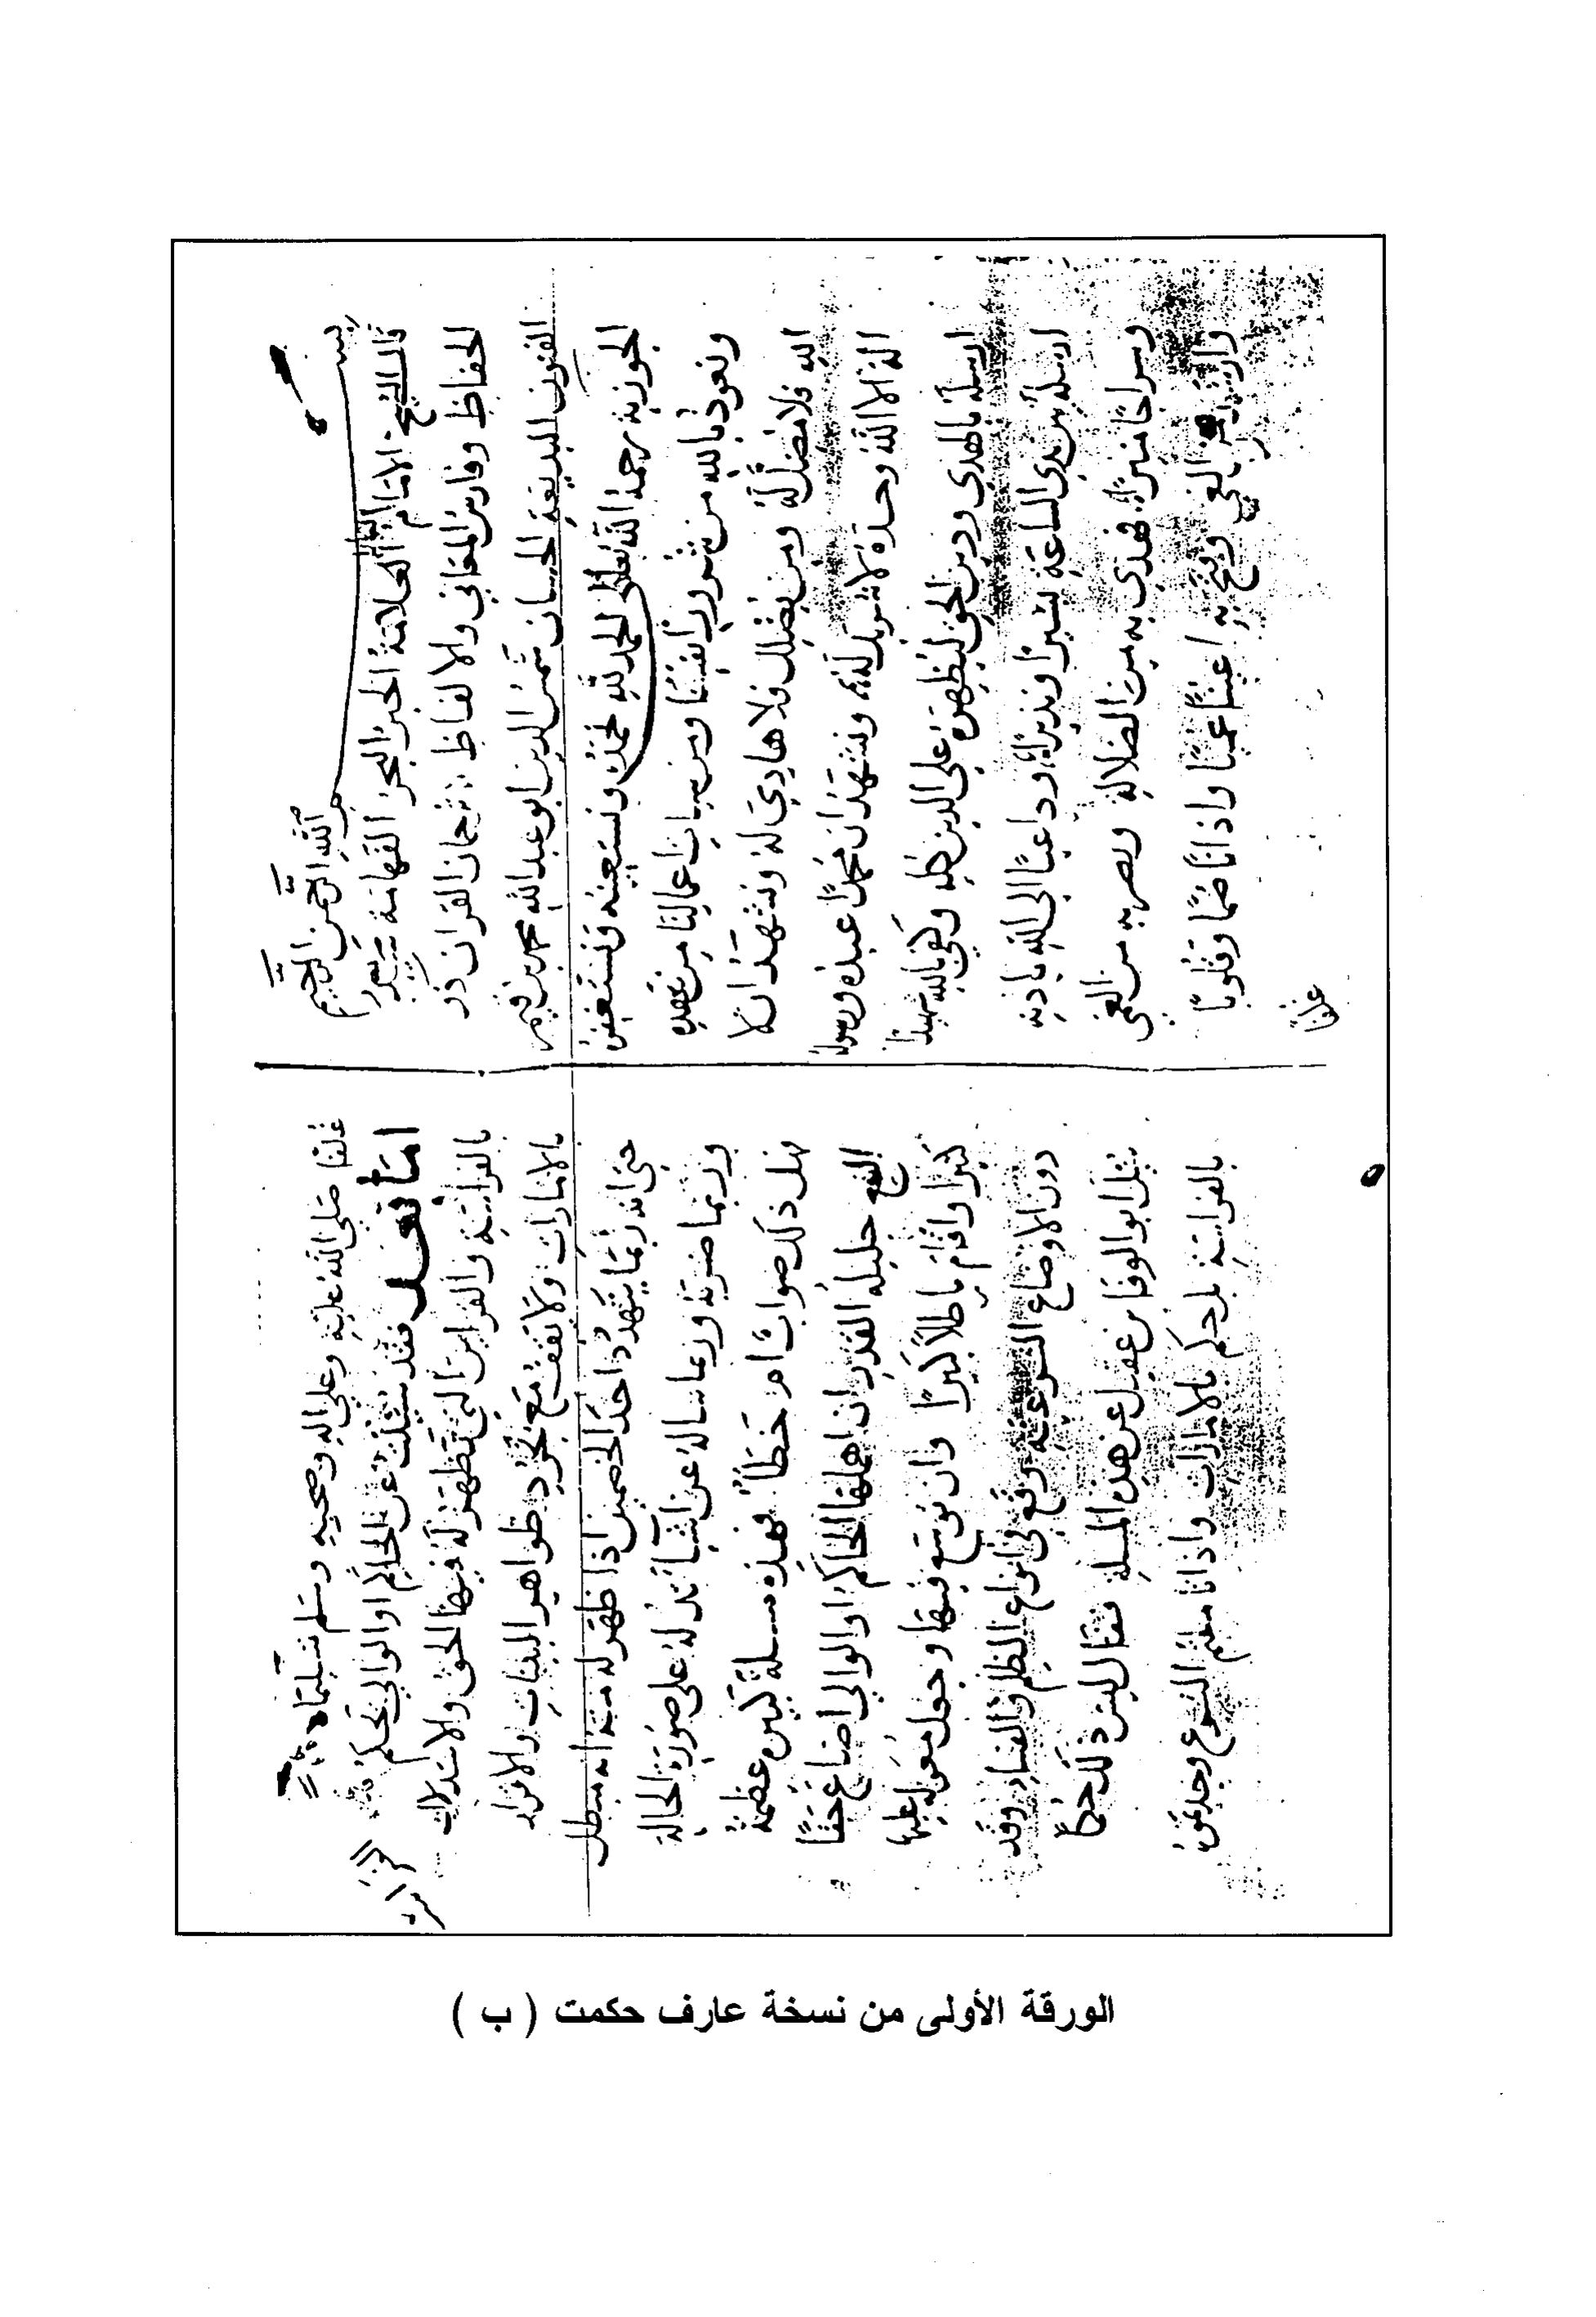 بسم الله الرحمن الرحيم
قال الشيخ الامام العلامة الحبر البحر الفهامة سيد
الحفاظ وفارس المعاني والالفاظ ترجمان القران ذو
الفنون البديعة الحسان شمس الدين ابو عبد الله محمد بن قيم
الجوزية رحمه الله تعالى الحمد لله نحمده ونستعينه ونستغفره
ونعوذ بالله من شرور انفسنا ومن سيات اعمالنا من يهده
الله فلا مضل له ومن يضلل فلا هادي له ونشهد ان لا
اله الا الله وحده لا شريك له ونشهد ان محمدا عبده ورسوله
ارسله بالهدى ودين الحق ليظهره على الدين كله وكفى بالله شهيدا
ارسله بين يدي الساعة بشيرا ونذيرا وداعيا الى الله باذنه
وسراجا منيرا فهدى به من الضلالة وبصر به من العمى
وارشد به من الغي وفتح به اعينا عميا واذانا صما وقلوبا
غلفا
غلفا صلى الله عليه وعلى اله وصحبه وسلم تسليما
اما بعد فقد سئلت عن الحاكم او الوالي يحكم
بالفراسة والقراين التي تظهر له فيها الحق والاستدلال
بالامارات ولا يقف مع مجرد ظواهر البينات والاقرار
حتى انه ربما يتهدد احد الخصمين اذا ظهر له منه انه مبطل
وربما ضربه وربما ساله عن اشيا تدله على صورة الحالة
فهل ذلك صواب ام خطأ فهذه مسلة كبيرة عظيمة
النفع جليلة القدر ان اهملها الحاكم او الوالي اضاع حقا
كثيرا واقام باطلا كبيرا وان توسع فيها وجعل معوله عليها
دون الاوضاع الشرعية وقع في انواع الظلم والفساد وقد
سئل ابو الوفا بن عقيل عن هذه المسلة فقال ليس ذلك حكما
بالفراسة بل حكم بالامارات واذا تاملتم الشرع وجدتموه
الورقة الأولى من نسخة عارف حكمت ( ب )